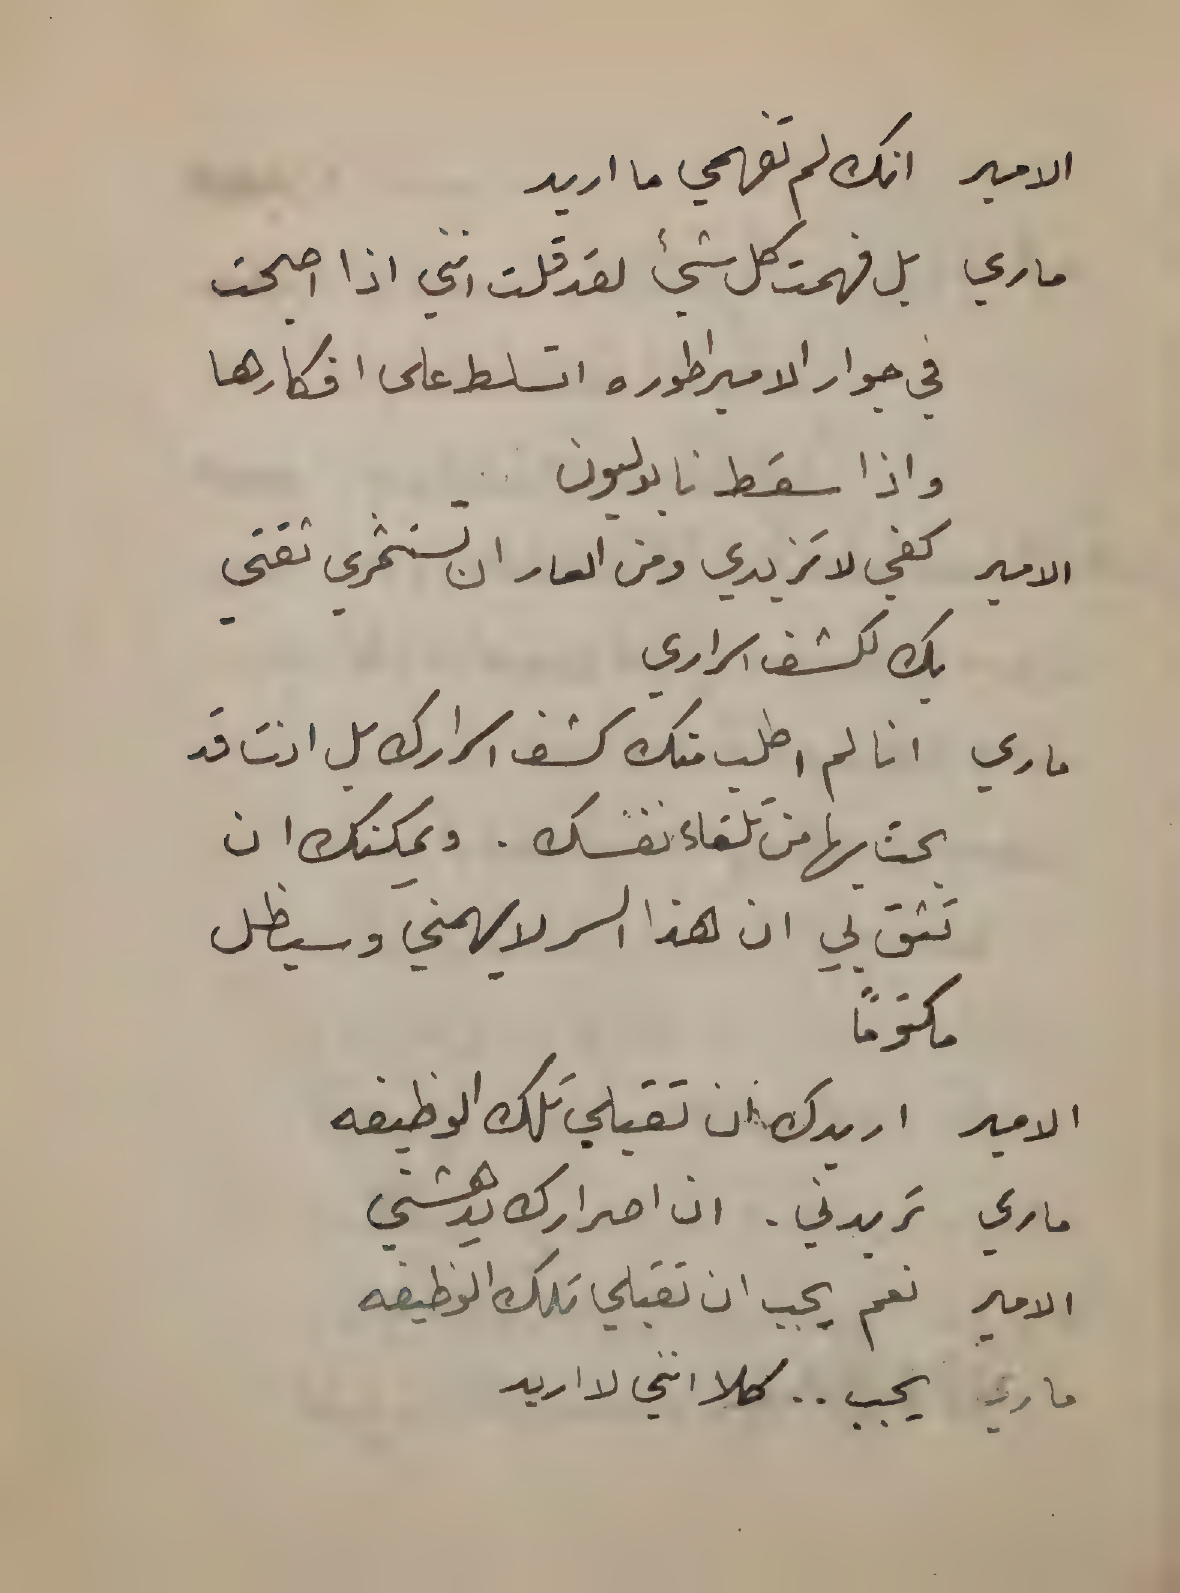 الامير انك لم تفهمي ما اريد
ماري بل فهمت كل شئ لقد قلت انني اذا اصبحت
في جوار الامبراطوره اتسلط على افكارها
واذا سقط نابوليون
الامير كفى لا تزيدي ومن العار ان تستثمري ثقتي
بك لكشف اسراري
ماري انا لم اطلب منك كشف اسرارك بل انت قد
بحت بها من تلقاء نفسك . ويمكنك ان
تثق بي ان هذا السر لا يهمني وسيظل
مكتومًا
الامير اريدك ان تقبلي تلك الوظيفه
ماري تريدني . ان اصرارك يدهشني
الامير نعم يجب ان تقبلي تلك الوظيفه
ماري يجب .. كلا انني لا اريد